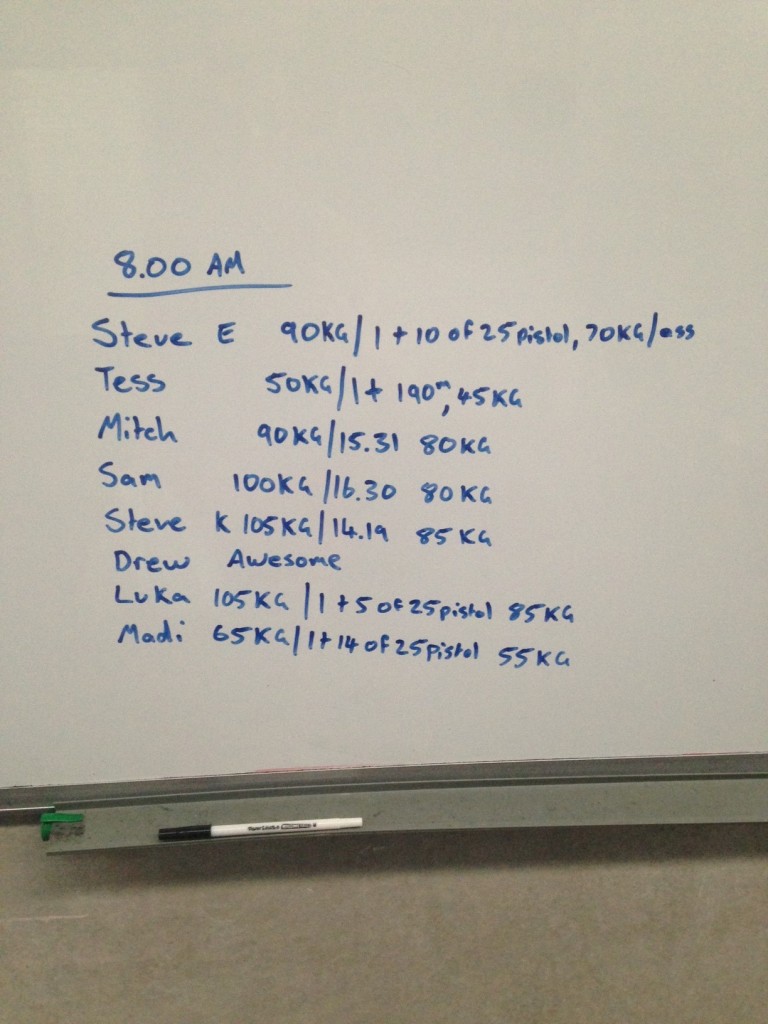 8.00 AM
Steve E 90KG/1 + 10 of 25 pistol, 70KG/ess
Tess 50KG/1 + 190m, 45KG
Mitch 90KG/15.31 80KG
Sam 100KG/16.30 80KG
Steve K 105KG/14.19 85KG
Drew Awesome
Luka 105KG/1 + 5 of 25 pistol 85KG
Madi 65KG/1 + 14 of 25 pistol 55KG